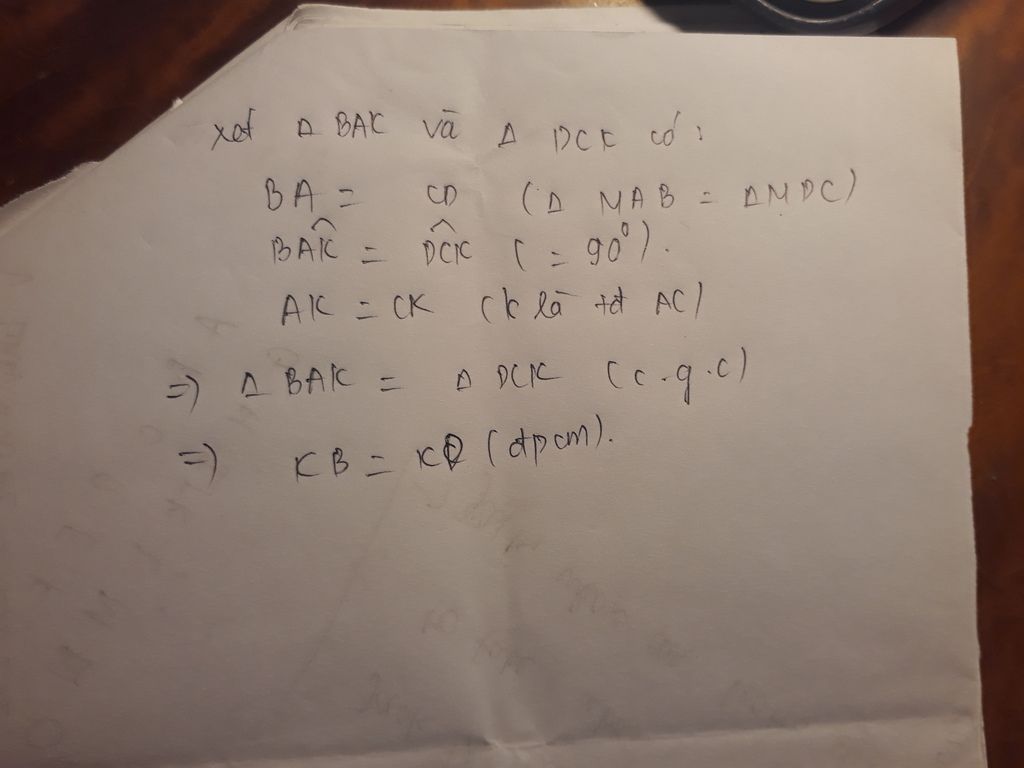 xét Δ BAK và Δ DCK có:
BA = CD (Δ MAB = ΔMDC)
BAK̂ = DĈK (= 90⁰).
AK = CK (K là tđ AC)
=) Δ BAK = Δ DCK (c.g.c)
=) KB = KD (đpcm).